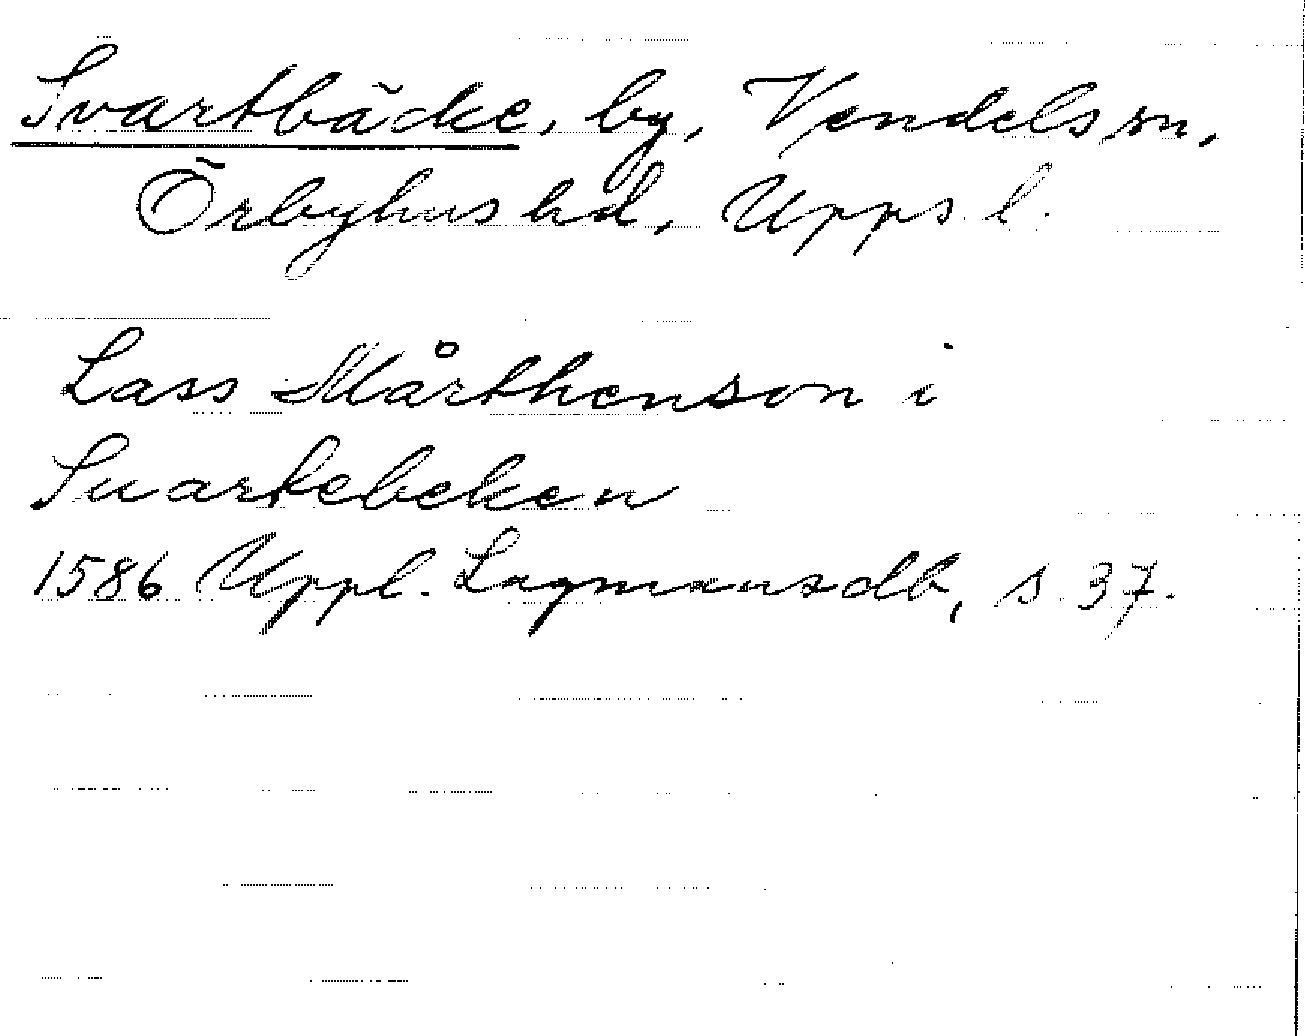 Svartbäcke, by, Vendels sn,
Örbyhus hd, Upps. l.
Lass Mårthenson i
Suartebeken
1586 Uppl. Lagmansdb, s 37.